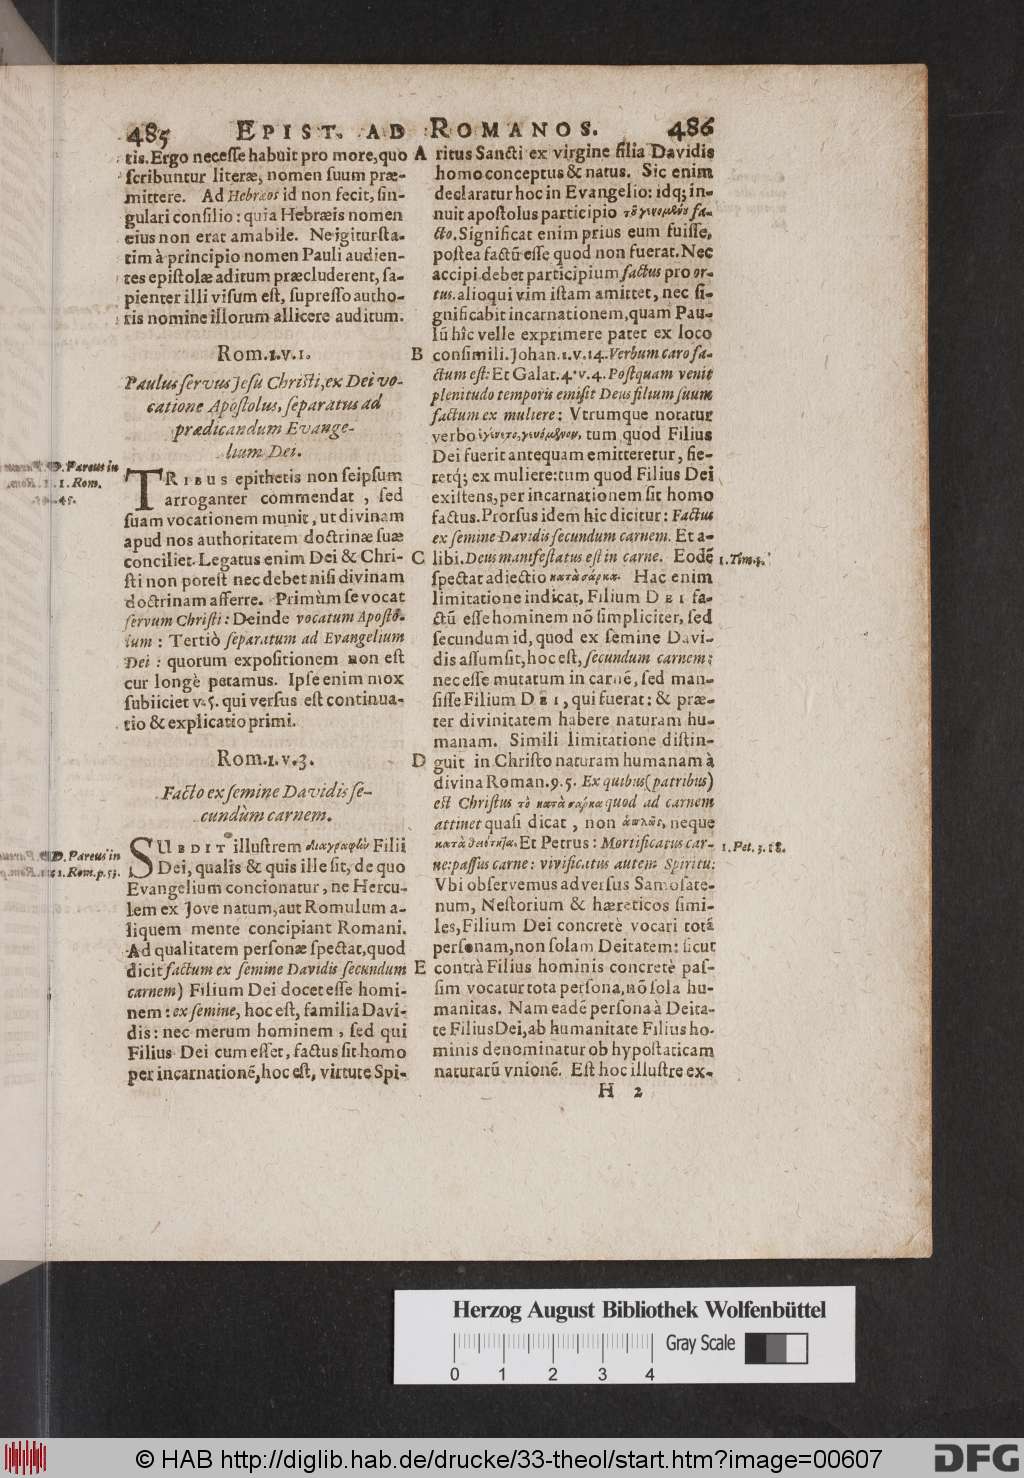 485 EPIST. AD ROMANOS. 486
tis. Ergo necesse habuit pro more, quo
scribuntur literæ, nomen suum præ-
mittere. Ad Hebræos id non fecit, sin-
gulari consilio: quia Hebræis nomen
eius non erat amabile. Ne igitur sta-
tim à principio nomen Pauli audien-
tes epistolæ aditum præcluderent, sa-
pienter illi visum est, supresso autho-
ris nomine illorum allicere auditum.
Rom.1.v.1.
Paulus servus Jesu Christi, ex Dei vo-
catione Apostolus, separatus ad
prædicandum Evange-
lium Dei.
D. Pareus in
1. Rom.
45.
TRIBUS epithetis non seipsum
arroganter commendat, sed
suam vocationem munit, ut divinam
apud nos authoritatem doctrinæ suæ
conciliet. Legatus enim Dei & Chri-
sti non potest nec debet nisi divinam
doctrinam afferre. Primùm se vocat
servum Christi: Deinde vocatum Aposto-
lum: Tertiò separatum ad Evangelium
Dei: quorum expositionem non est
cur longè petamus. Ipse enim mox
subiiciet v.5. qui versus est continua-
tio & explicatio primi.
Rom.1.v.3.
Facto ex semine Davidis se-
cundùm carnem.
D. Pareus in
1. Rom. p. 53.
SUBDIT illustrem διαγραφὼ Filii
Dei, qualis & quis ille sit, de quo
Evangelium concionatur, ne Hercu-
lem ex Jove natum, aut Romulum a-
liquem mente concipiant Romani.
Ad qualitatem personæ spectat, quod
dicit factum ex semine Davidis secundum
carnem) Filium Dei docet esse homi-
nem: ex semine, hoc est, familia Davi-
dis: nec merum hominem, sed qui
Filius Dei cum esset, factus sit homo
per incarnationẽ, hoc est, virtute Spi-
A ritus Sancti ex virgine filia Davidis
homo conceptus & natus. Sic enim
declaratur hoc in Evangelio: idq; in-
nuit apostolus participio τοῦ γινομένου fa-
cto. Significat enim prius eum fuisse,
postea factũ esse quod non fuerat. Nec
accipi debet participium factus pro or-
tus. alioqui vim istam amittet, nec si-
gnificabit incarnationem, quam Pau-
lũ hîc velle exprimere patet ex loco
B consimili. Johan. 1. v. 14. Verbum caro fa-
ctum est: Et Galat. 4. v. 4. Postquam venit
plenitudo temporis emisit Deus filium suum
factum ex muliere: Vtrumque notatur
verbo ἐγίνετο, γινόμενον, tum quod Filius
Dei fuerit antequam emitteretur, fie-
retq; ex muliere: tum quod Filius Dei
existens, per incarnationem sit homo
factus. Prorsus idem hic dicitur: Factus
ex semine Davidis secundum carnem. Et a-
C libi. Deus manifestatus est in carne. Eodẽ 1. Tim. 3.
spectat adiectio κατὰ σάρκα. Hac enim
limitatione indicat, Filium DEI fa-
ctũ esse hominem nõ simpliciter, sed
secundum id, quod ex semine Davi-
dis assumsit, hoc est, secundum carnem:
nec esse mutatum in carnẽ, sed man-
sisse Filium DEI, qui fuerat: & præ-
ter divinitatem habere naturam hu-
manam. Simili limitatione distin-
D guit in Christo naturam humanam à
divina Roman. 9. 5. Ex quibus (patribus)
est Christus τὸ κατὰ σαρκα quod ad carnem
attinet quasi dicat, non ἁπλῶς, neque
κατὰ θεότητα. Et Petrus: Mortificatus car- 1. Pet. 3. 18.
ne: passus carne: vivificatus autem Spiritu:
Vbi observemus adversus Samosate-
num, Nestorium & hæreticos simi-
les, Filium Dei concretè vocari totã
personam, non solam Deitatem: sicut
E contrà Filius hominis concretè pas-
sim vocatur tota persona, nõ sola hu-
manitas. Nam eadẽ persona à Deita-
te Filius Dei, ab humanitate Filius ho-
minis denominatur ob hypostaticam
naturarũ vnionẽ. Est hoc illustre ex-
H 2
Herzog August Bibliothek Wolfenbüttel
Gray Scale
0 1 2 3 4
© HAB http://diglib.hab.de/drucke/33-theol/start.htm?image=00607
DFG